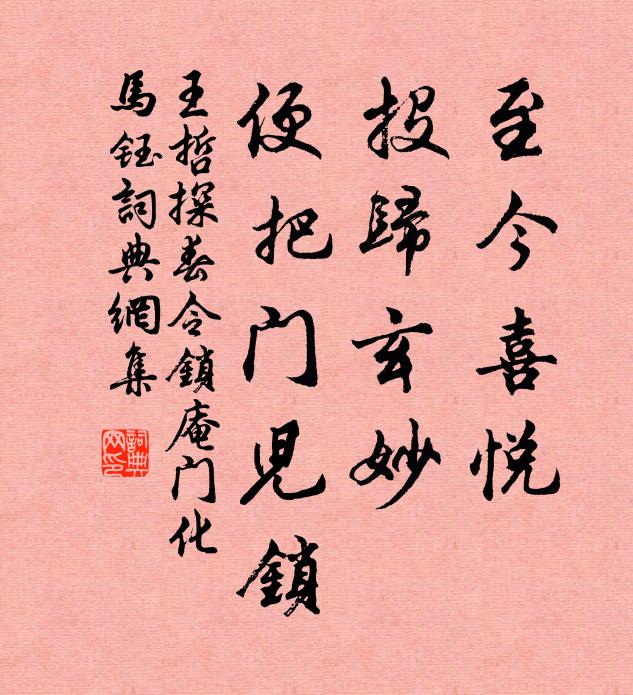 至今喜悅
投歸玄妙
便把门児鎖
王哲探春令鎖庵门化
馬鈺詞典網集
詞典网印